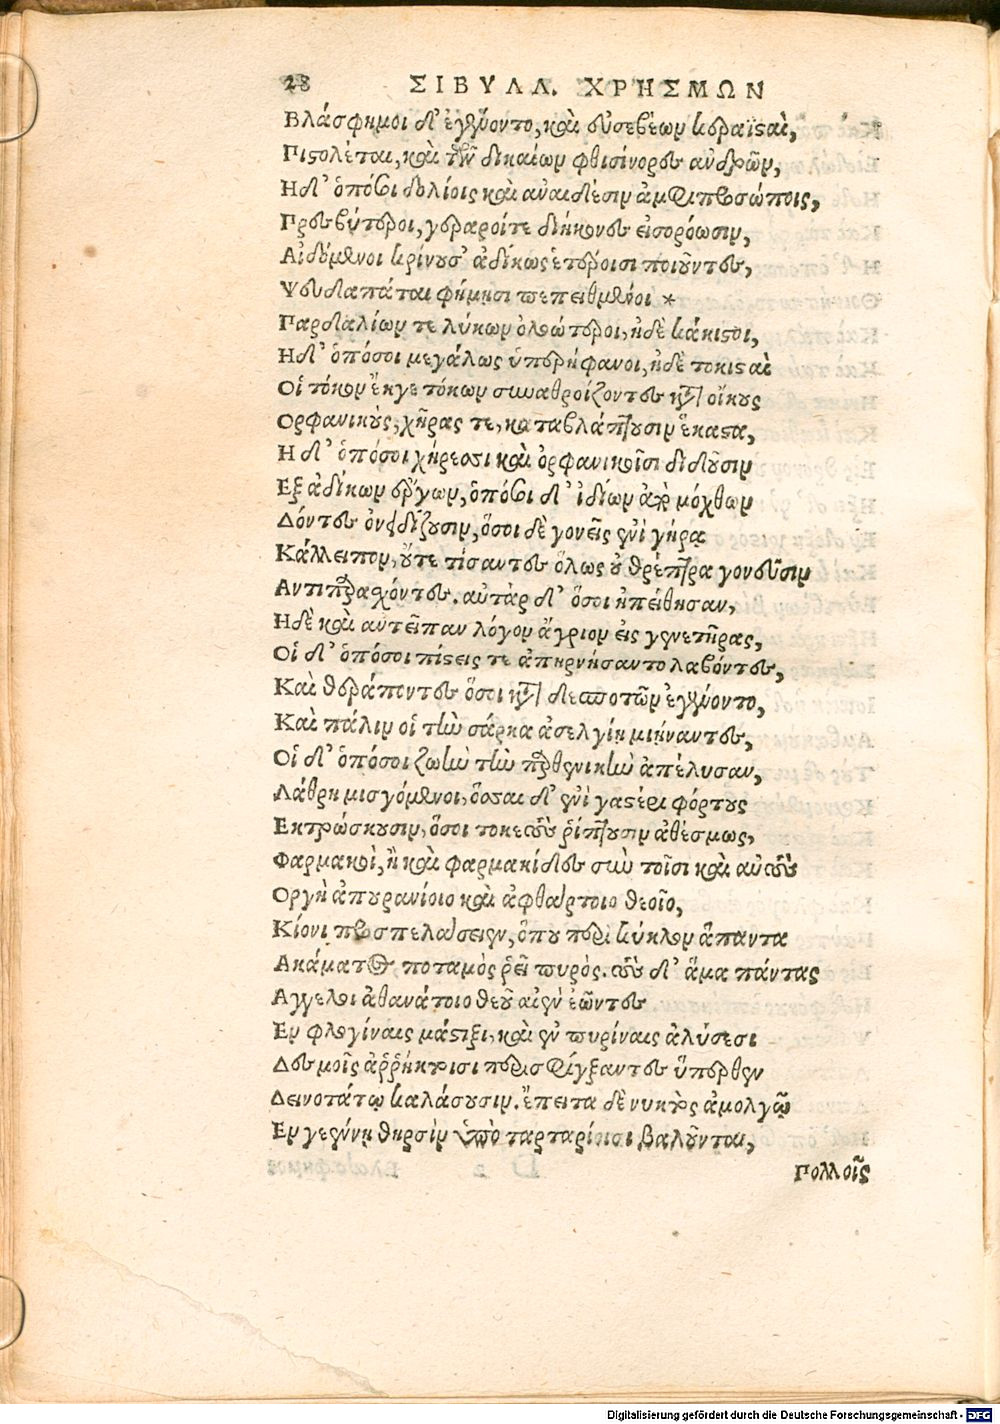 28 ΣΙΒΥΛΛ. ΧΡΗΣΜΩΝ
Βλάσφημοι δ' ἐγένοντο, καὶ εὐσεβέων κεραϊσταὶ,
Πιστολέται, καὶ τῶν δικαίων φθισίνορες ἀνδρῶν,
Ηδ' ὁπόσοι δολίοις καὶ ἀναιδέσιν ἀμφιπροσώποις,
Πρεσβύτεροι, γεραροί τε διήκονες εἰσορόωσιν,
Αἰδόμενοι κρίνουσ' ἀδίκως ἑτέροισι ποιοῦντες,
Ψευδαπάται φήμῃσι πεπειθμένοι *
Παρδαλίων τε λύκων ὀλοώτεροι, ἠδὲ κάκιστοι,
Ηδ' ὁπόσοι μεγάλως ὑπερήφανοι, ἠδὲ τοκισταὶ
Οἱ τόκον ἔκγε τόκων συναθροίζοντες κατ' οἴκους
Ορφανικοὺς, χῆρας τε, καταβλάπτουσιν ἕκαστα,
Ηδ' ὁπόσοι χήρεσσι καὶ ὀρφανικοῖσι διδοῦσιν
Εξ ἀδίκων ἔργων, ὁπόσοι δ' ἰδίων ἀπὸ μόχθων
Δόντες ὀνειδίζουσιν, ὅσοι δὲ γονεῖς ἐνὶ γήρᾳ
Κάλλειπον, οὔτε τίσαντες ὅλως οὐ θρέπτρα γονεῦσιν
Αντιπαραχόντες. αὐτὰρ δ' ὅσοι ἠπείθησαν,
Ηδὲ καὶ αὐτεῖπαν λόγον ἄγριον εἰς γενετῆρας,
Οἱ δ' ὁπόσοι πίστεις τε ἀπηρνήσαντο λαβόντες,
Καὶ θεράποντες ὅσοι κατὰ δεσποτῶν ἐγένοντο,
Καὶ πάλιν οἱ τὴν σάρκα ἀσελγίῃ μιήναντες,
Οἱ δ' ὁπόσοι ζωὴν τὴν παρθενικὴν ἀπέλυσαν,
Λάθρῃ μισγόμενοι, ὅσσαι δ' ἐνὶ γαστέρι φόρτους
Εκτρώσκουσιν, ὅσοι τοκετοὺς ῥίπτουσιν ἀθέσμως,
Φαρμακοὶ, ἢ καὶ φαρμακίδες σὺν τοῖσι καὶ αὐτοὺς
Οργὴ ἀπουρανίοιο καὶ ἀφθάρτοιο θεοῖο,
Κίονι προσπελάσειεν, ὅπου περὶ κύκλον ἅπαντα
Ακάματος ποταμὸς ῥεῖ πυρὸς. τοὺς δ' ἅμα πάντας
Αγγελοι ἀθανάτοιο θεοῦ αἰὲν ἐῶντες
Εν φλογίναις μάστιξι, καὶ ἐν πυρίναις ἁλύσεσι
Δεσμοῖς ἀῤῥήκτοισι περισφίγξαντες ὕπερθεν
Δεινοτάτῳ κολάσουσιν. ἔπειτα δὲ νυκτὸς ἀμολγῷ
Εν γεέννῃ θηρσὶν ὑπὸ ταρταρίοισι βαλοῦνται,
Πολλοῖς
Digitalisierung gefördert durch die Deutsche Forschungsgemeinschaft - DFG